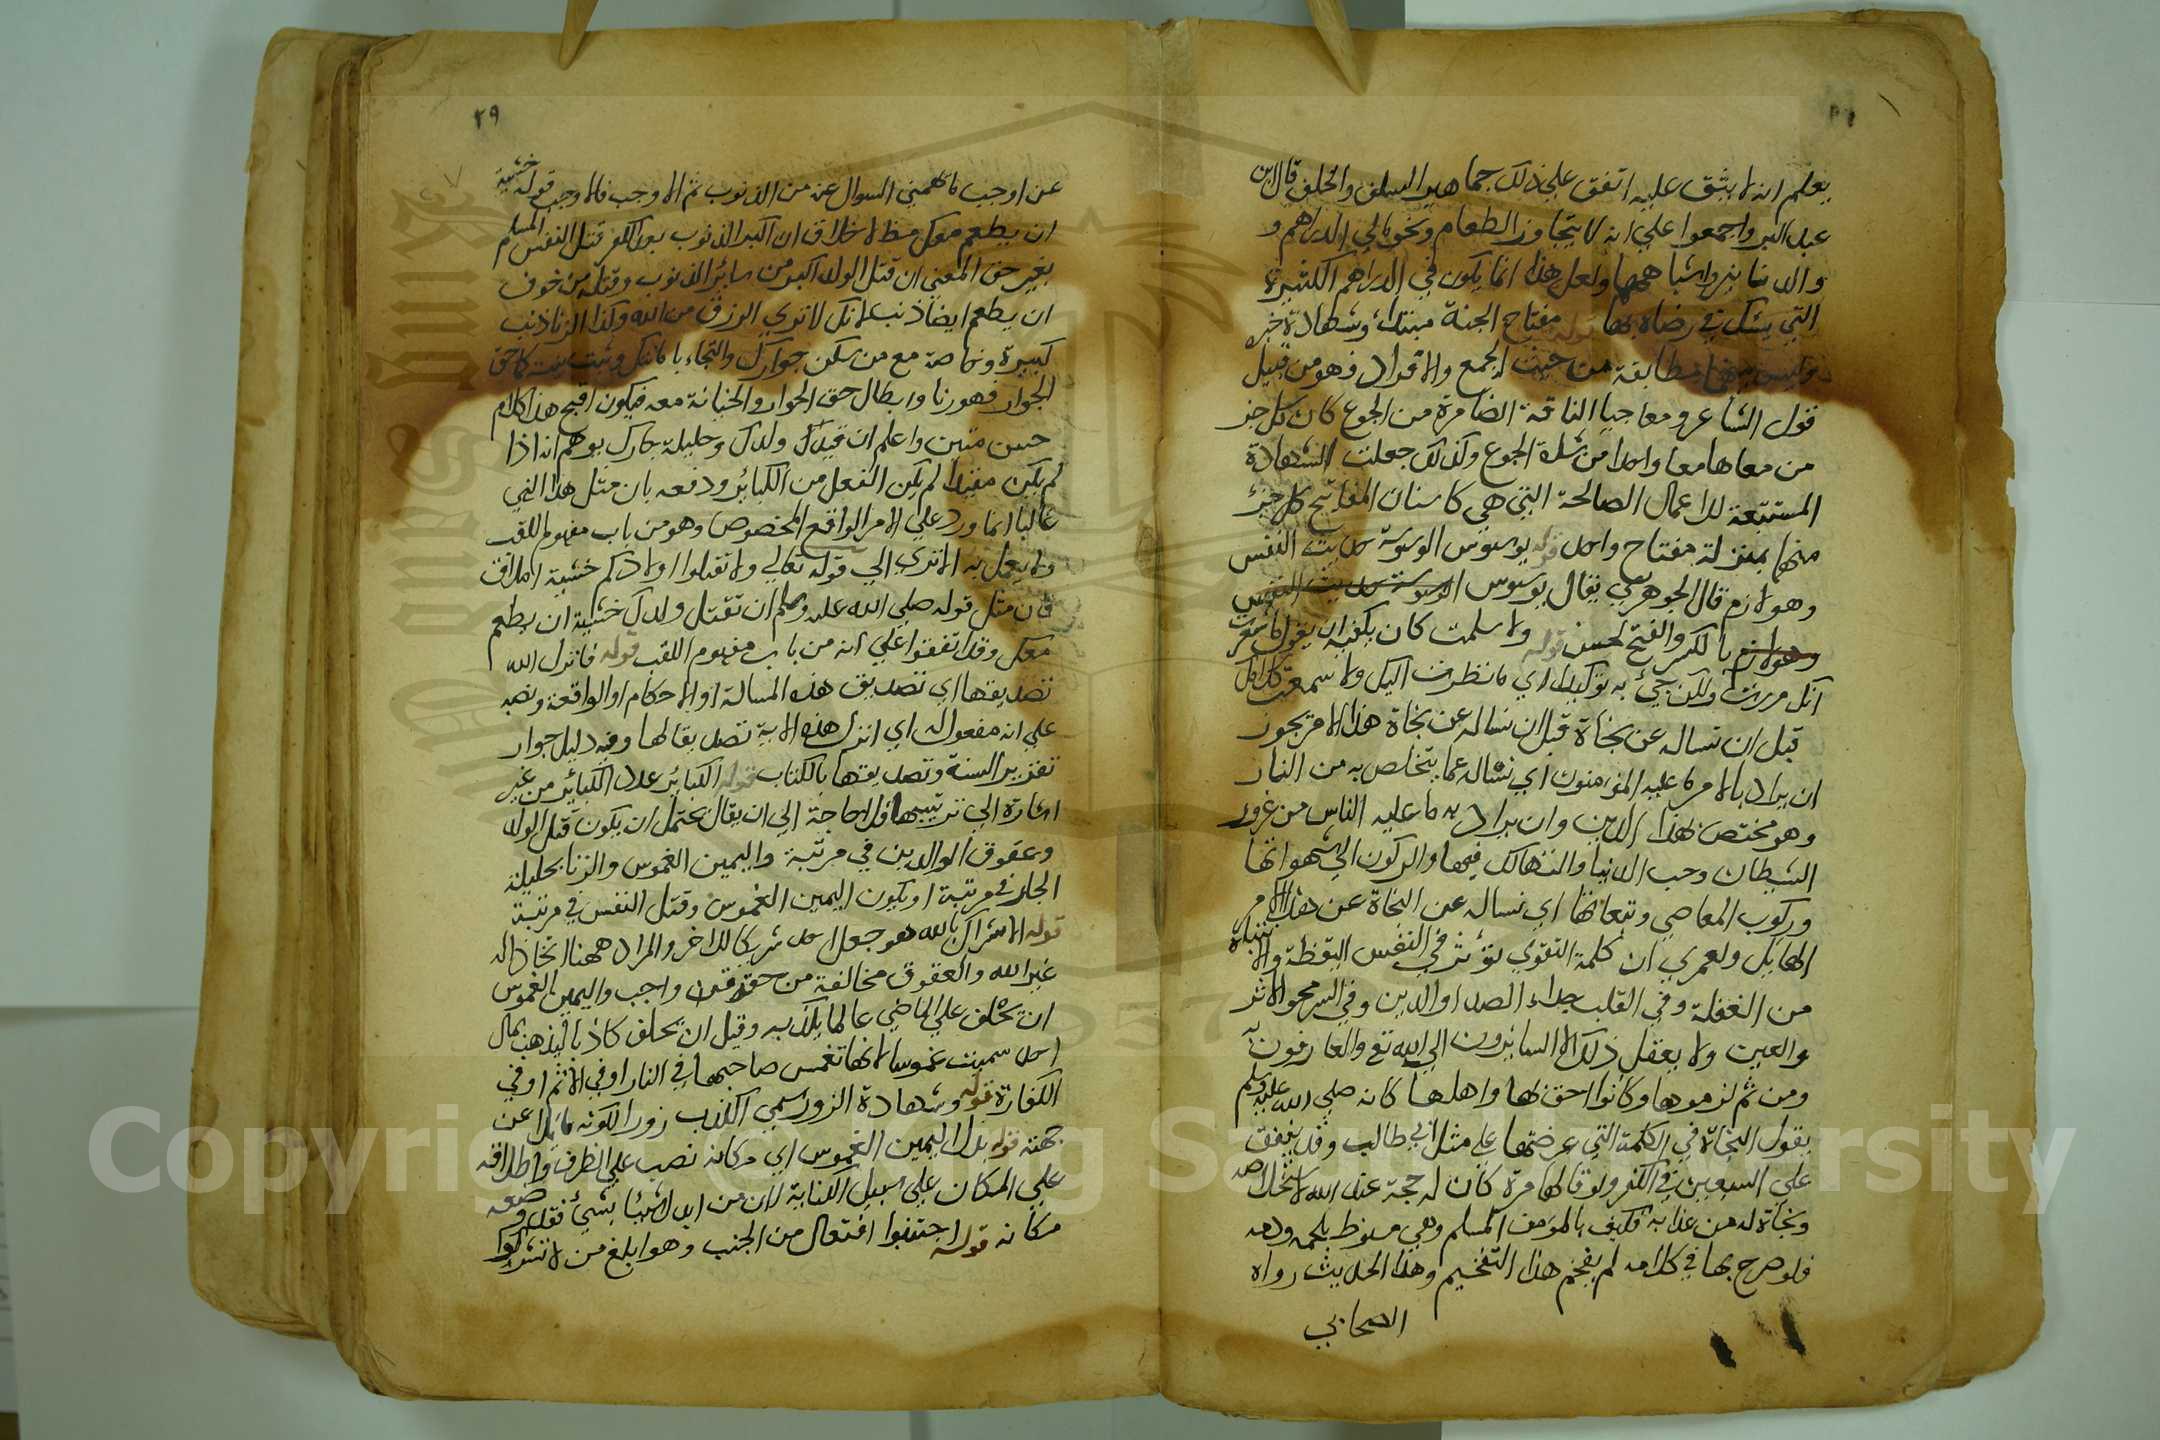 يعلم انه لا يشق عليه اتفق علي ذلك جماهير السلف والخلف قال ابن
عبد البر واجمعوا علي انه لا يتجاوز الطعام ونحوه الي الدراهم و
والدنانير واشباههما ولعل هذا انما يكون في الدراهم الكثيرة
التي يشك في رضاه بها قوله مفتاح الجنة مبتدأ وشهادة خبر
وليس بينهما مطابقة من حيث الجمع والافراد فهو من قبيل
قول الشاعر ومعا جياعا الناقة الضامرة من الجوع كان كل جز
من معاها معا واحدا من شدة الجوع وكذلك جعلت الشهادة
المستتبعة للاعمال الصالحة التي هي كاسنان المفاتيح كل جزء
منها بمنزلة مفتاح واحد قوله يوسوس الوسوسة حديث النفس
وهو لازم قال الجوهري يقال يوسوس الوسوسة حديث النفس
وهو لازم بالكسر والفتح لحسن قوله ولا سلمت كان يكفيه ان يقول ما شعرت
انك مررت ولكن جيء به توكيدا اي ما نظرت اليك ولا سمعت كلامك
قبل ان نساله عن نجاة قبل ان نساله عن نجاة هذا الامر يجوز
ان يراد بالامر ما عليه المؤمنون اي نساله عما يتخلص به من النار
وهو مختص بهذا الدين وان يراد به ما عليه الناس من غرور
الشيطان وحب الدنيا والتهالك فيها والركون الي شهواتها
وركوب المعاصي وتبعاتها اي نساله عن النجاة عن هذا الامر
الهايل ولعمري ان كلمة التقوي تؤثر في النفس اليقظة والانتباه
من الغفلة وفي القلب جلاء الصدا والدين وفي السر محو الاثر
والعين ولا يعقل ذلك الا السايرون الي الله تع والعارفون به
ومن ثم لزموها وكانوا احق بها واهلها كانه صلي الله عليه وسلم
يقول النجاة في الكلمة التي عرضتها علي مثل ابي طالب وقد ينفق
علي السبعين في الكفر ولو قالها مرة كان له حجة عند الله لاستخلاصه
ونجاة له من عذابه فكيف بالمؤمن المسلم وهي منوط بلحمه ودمه
فلو صرح بها في كلامه لم يفخم هذا التفخيم وهذا الحديث رواه
الصحابي
٢٩
عن اوجب ما يهمني السوال عنه من الذنوب ثم الاوجب فالاوجب قوله خشية
ان يطعم معك مظ لا خلاف ان اكبر الذنوب بعد الكفر قتل النفس المسلم
بغير حق المعني ان قتل الولد اكبر من سائر الذنوب وقتله من خوف
ان يطعم ايضا ذنب لانك لا تري الرزق من الله وكذا الزنا ذنب
كبيرة وخاصة مع من سكن جوارك والتجاء بامانتك
الجوار فهو زنا وابطال حق الجوار والخيانة معه فيكون اقبح هذا كلام
حسن متين واعلم ان قيدك ولدك وحليلة جارك يوهم انه اذا
لم يكن مقيدا لم يكن الفعل من الكبائر ودفعه بان مثل هذا النهي
غالبا انما ورد علي الامر الواقع المخصوص وهو من باب مفهوم اللقب
ولا يعمل به الا تري الي قوله تعالي ولا تقتلوا اولادكم خشية املاق
فان مثل قوله صلي الله عليه وسلم ان تقتل ولدك خشية ان يطعم
معك وقد اتفقوا علي انه من باب مفهوم اللقب قوله فانزل الله
تصديقها اي تصديق هذه المسالة او الاحكام او الواقعة ونصبه
علي انه مفعول له اي انزل هذه الاية تصديقا لها وفيه دليل جواز
تقرير السنة وتصديقها بالكتاب قوله الكبائر علا الكبائر من غير
اشارة الي ترتيبها فلا حاجة الي ان يقال يحتمل ان يكون قتل الولد
وعقوق الوالدين في مرتبة واليمين الغموس والزنا بحليلة
الجار في مرتبة او يكون اليمين الغموس وقتل النفس في مرتبة
قوله الاشراك بالله هو جعل احد شريكا للاخر والمراد ههنا اتخاذ اله
غير الله والعقوق مخالفة من حقوقه واجب واليمين الغموس
ان تحلف علي الماضي عالما بكذبه وقيل ان تحلف كاذبا ليذهب بمال
احد سميت غموسا لانها تغمس صاحبها في النار او في الاثم او في
الكفارة قوله وشهادة الزور سمي الكذب زورا لكونه مائلا عن
جهته قوله بدل اليمين الغموس اي مكانه نصب علي الظرف واطلاقه
علي المكان علي سبيل الكناية لان من ابدل شيئا بشيء فقد وضعه
مكانه قوله اجتنبوا افتعال من الجنب وهو ابلغ من لا تشركوا
Copyright © King Saud University
1957